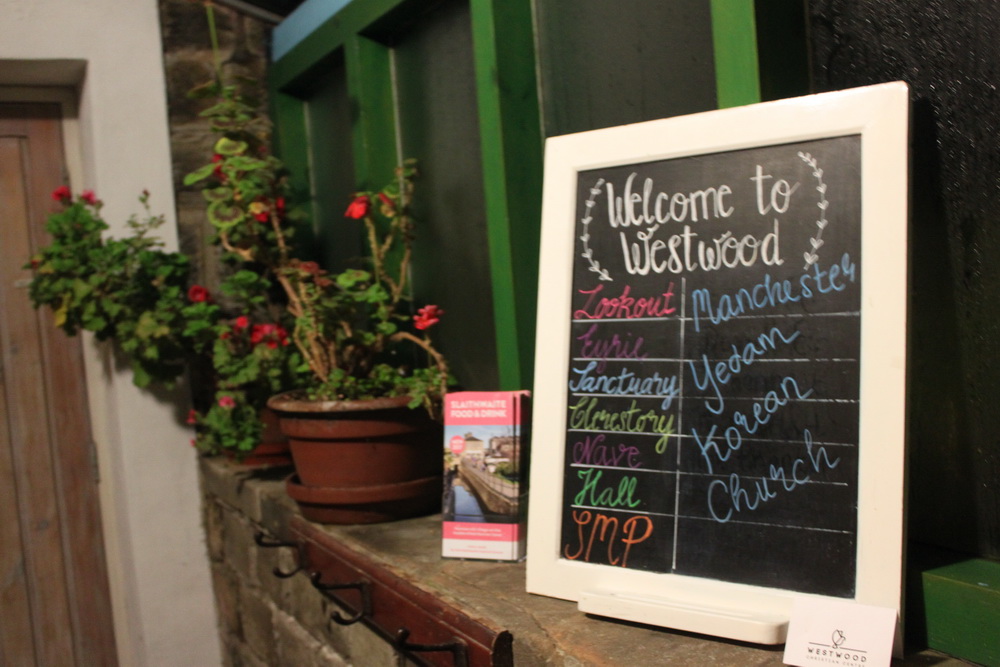 Welcome to
Westwood
Lookout
Eyrie
Sanctuary
Clerestory
Nave
Hall
SMP
Manchester
Yedam
Korean
Church
SLAITHWAITE
FOOD & DRINK
WESTWOOD
CHRISTIAN CENTRE